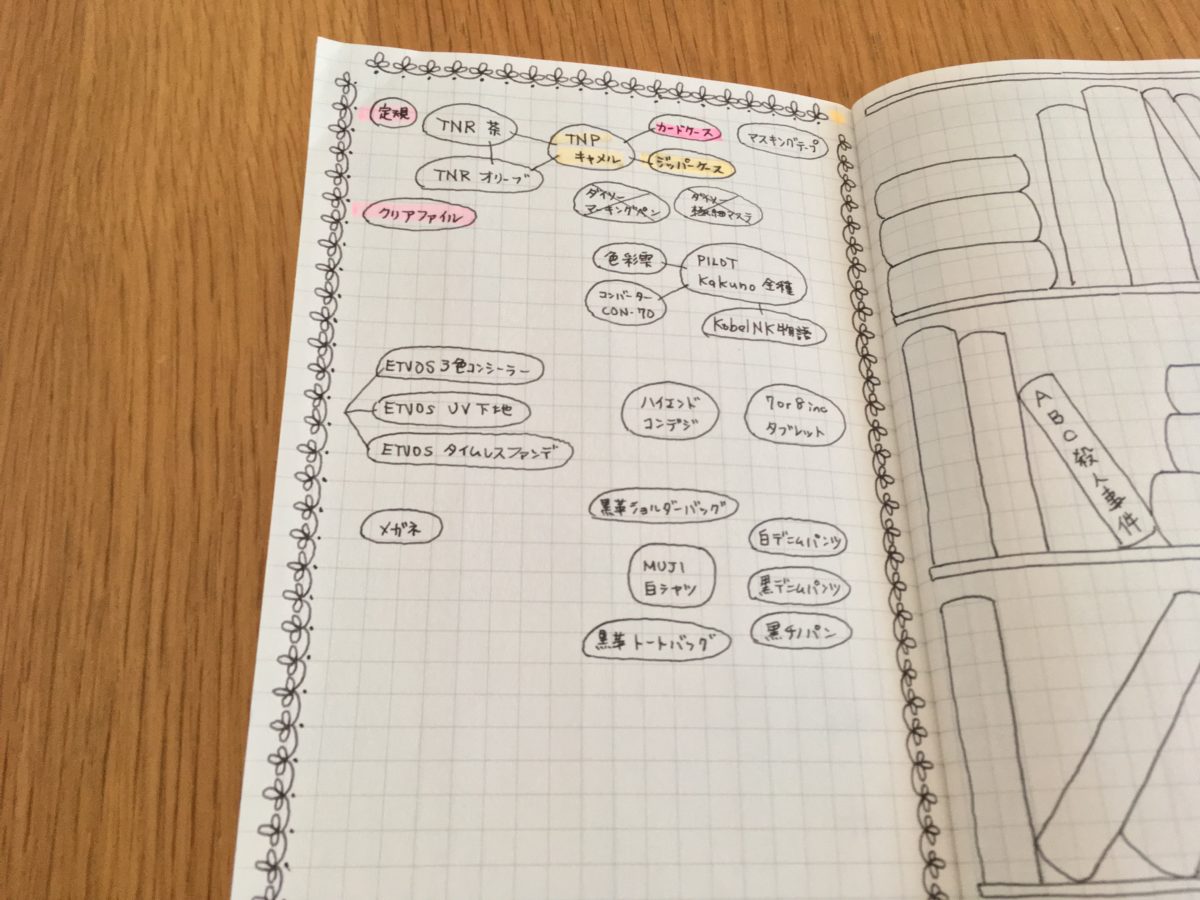 定規
TNR 茶
TNP
キャメル
カードケース
マスキングテープ
TNR オリーブ
ジッパーケース
クリアファイル
ダイソー
マーキングペン
ダイソー
極細マステ
色彩雫
PILOT
Kakuno 全種
コンバーター
CON-70
Kobe INK物語
ETVOS 3色コンシーラー
ETVOS UV下地
ETVOS タイムレスファンデ
ハイエンド
コンデジ
7or8inc
タブレット
メガネ
黒革ショルダーバッグ
MUJI
白シャツ
黒革トートバッグ
白デニムパンツ
黒デニムパンツ
黒チノパン
ABC殺人事件